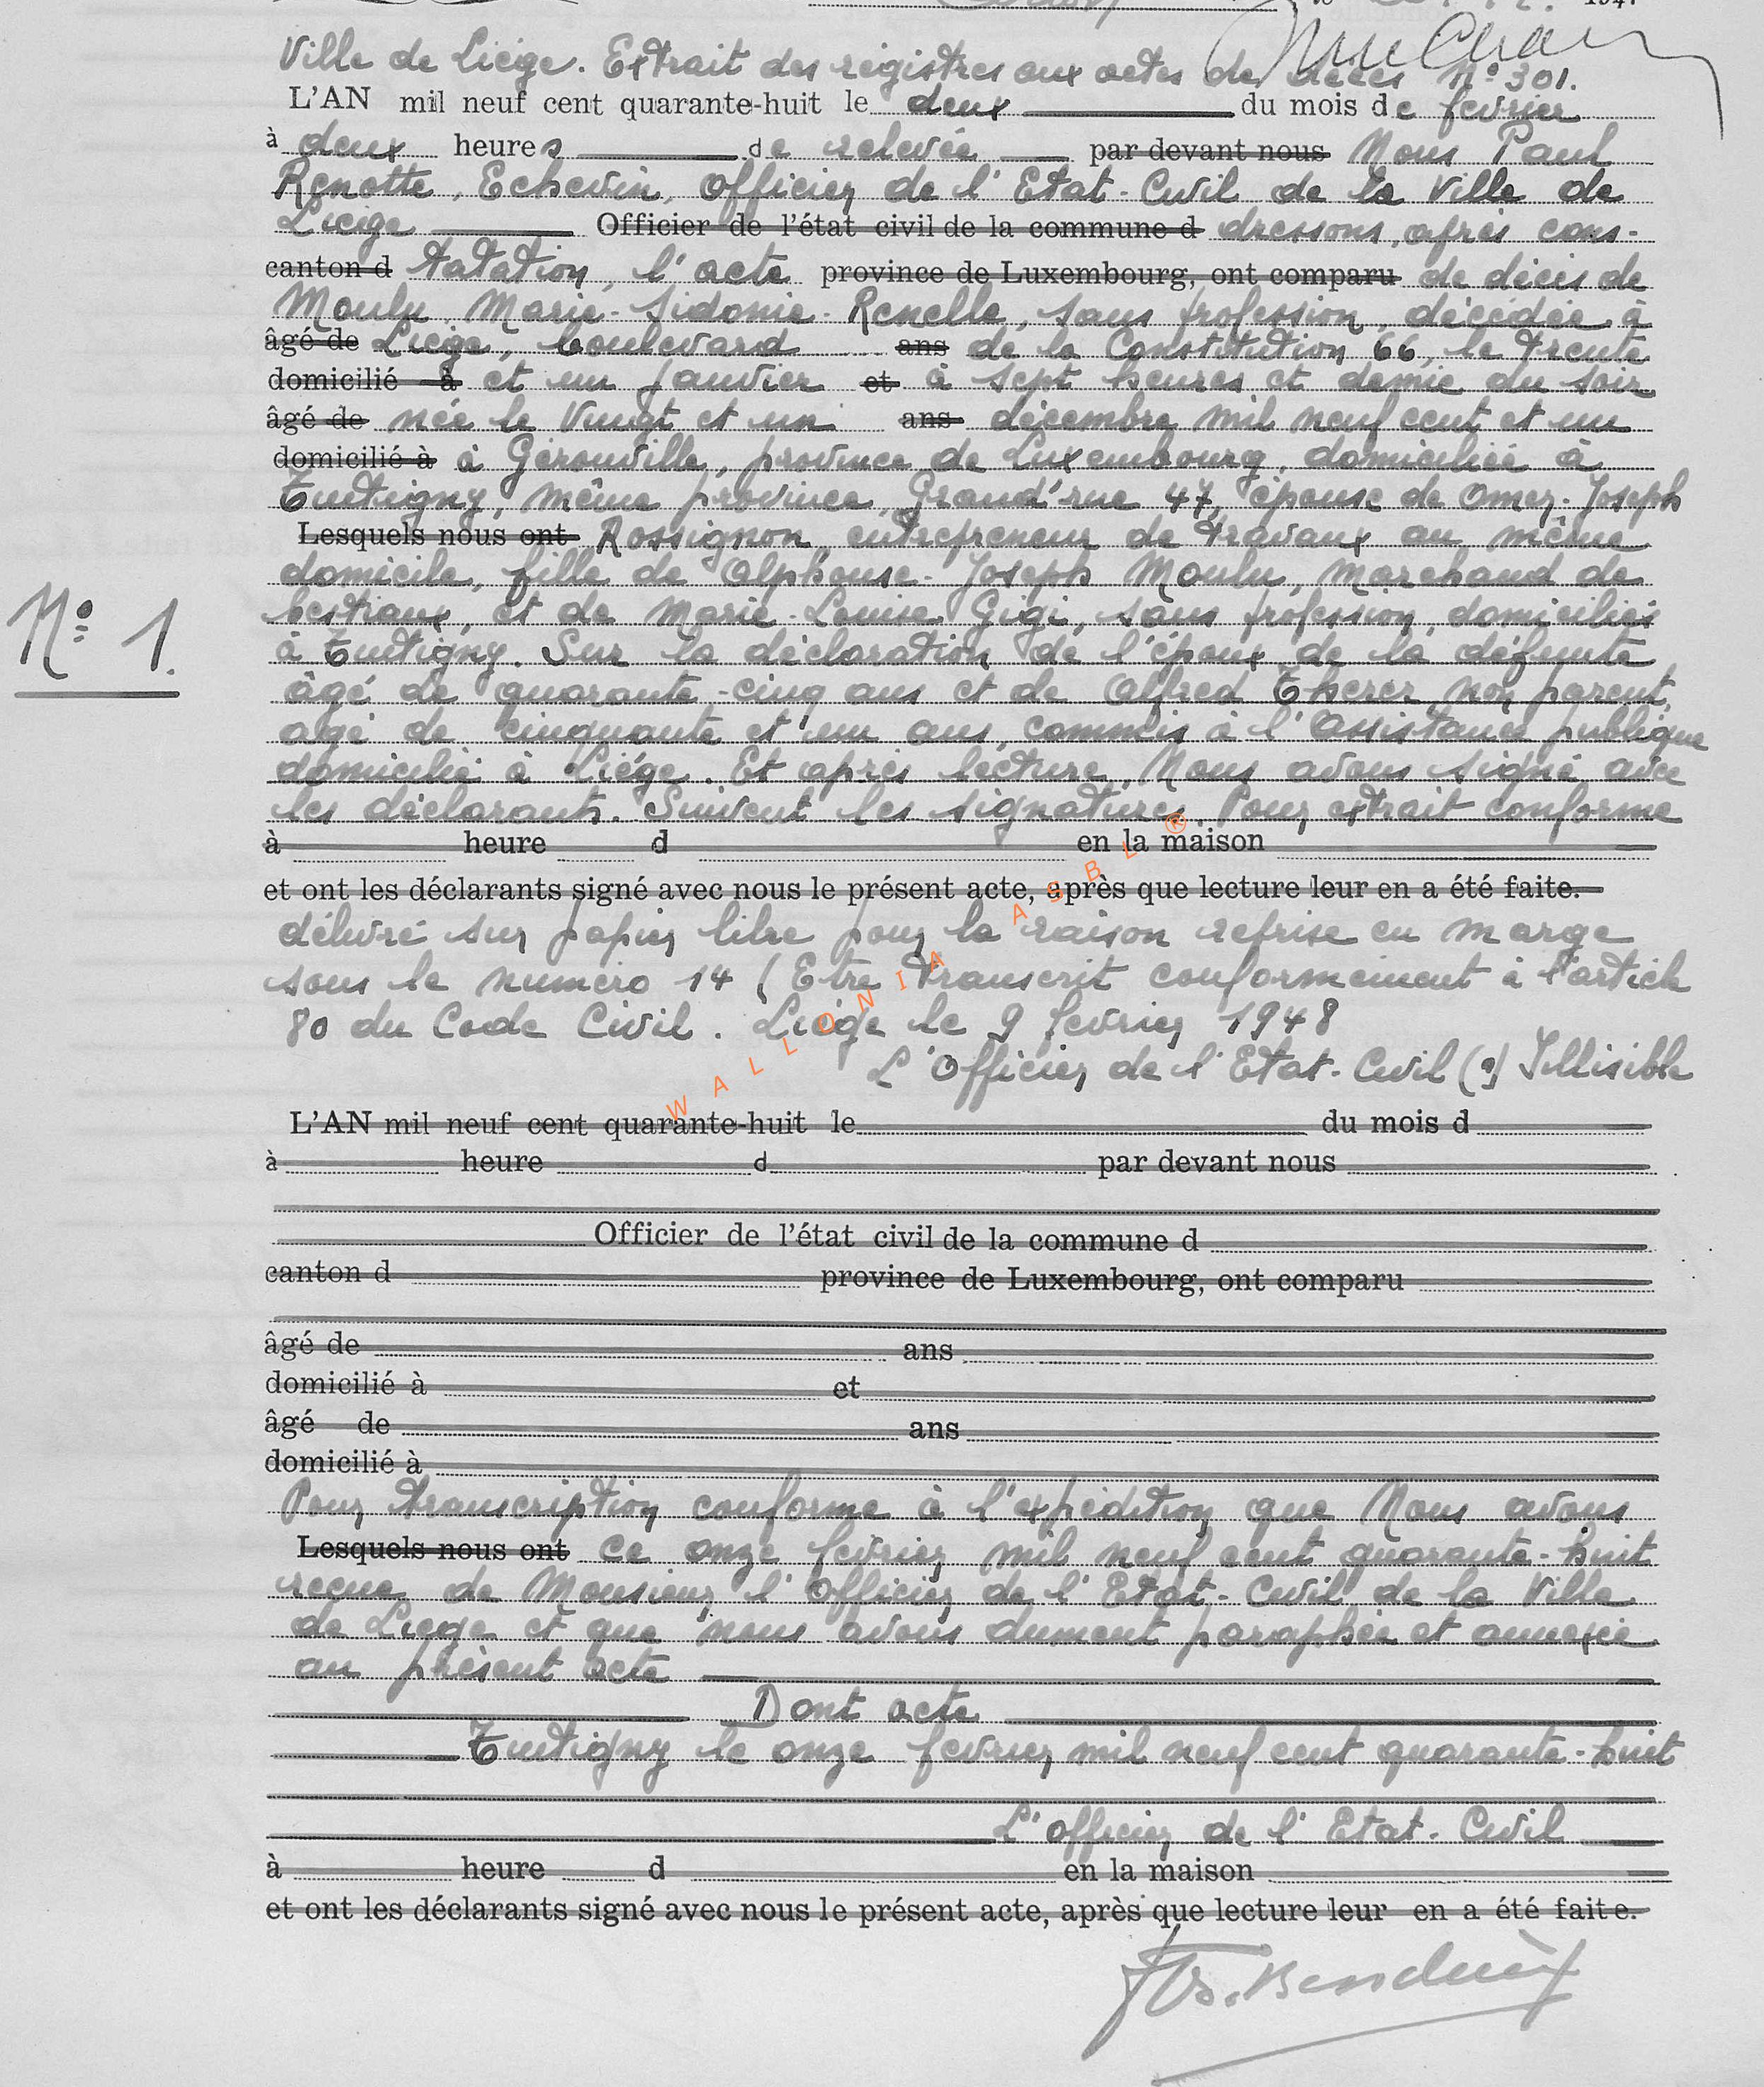 Ville de Liège. Extrait des registres aux actes de décès N° 301.
L'AN mil neuf cent quarante-huit le deux du mois de février
à deux heures de relevée par devant nous Nous Paul
Renotte, Echevin, Officier de l'Etat-Civil de la Ville de
Liège Officier de l'état civil de la commune d dressons, après cons-
canton d tatation, l'acte province de Luxembourg, ont comparu de décès de
Moulu, Marie-Sidonie-Renelle, sans profession, décédée à
âgé de Liège, boulevard ans de la Constitution 66, le trente
domicilié à et un janvier et à sept heures et demie du soir
âgé de née le vingt et un ans décembre mil neuf cent et un
domicilié à à Gérouville, province de Luxembourg, domiciliée à
Tintigny, même province, Grand'rue 47, épouse de Omer-Joseph
Lesquels nous ont Rossignon, entrepreneur de travaux au même
domicile, fille de Alphonse-Joseph Moulu, marchand de
bestiaux, et de Marie-Louise Gigi, sans profession, domiciliés
à Tintigny. Sur la déclaration de l'époux de la défunte
âgé de quarante-cinq ans et de Alfred Therer, non parent,
N° 1.
âgé de cinquante et un ans, commis à l'Assistance publique
domicilié à Liège. Et après lecture, Nous avons signé avec
les déclarants. Suivent les signatures. Pour extrait conforme
à heure d en la maison
et ont les déclarants signé avec nous le présent acte, après que lecture leur en a été faite.
délivré sur papier libre pour la raison reprise en marge
sous le numéro 14 (Etre transcrit conformément à l'article
80 du Code Civil. Liège le 9 février 1948
L'Officier de l'Etat-Civil (s) Illisible
WALLONIA ASBL ®
L'AN mil neuf cent quarante-huit le du mois d
à heure d par devant nous
Officier de l'état civil de la commune d
canton d province de Luxembourg, ont comparu
âgé de ans
domicilié à et
âgé de ans
domicilié à
Pour transcription conforme à l'expédition que Nous avons
Lesquels nous ont ce onze février mil neuf cent quarante-huit
reçue de Monsieur l'Officier de l'Etat-Civil de la Ville
de Liège et que nous avons dument paraphée et annexée
au présent acte
Dont acte
Tintigny le onze février mil neuf cent quarante-huit
L'officier de l'Etat-Civil
à heure d en la maison
et ont les déclarants signé avec nous le présent acte, après que lecture leur en a été faite.